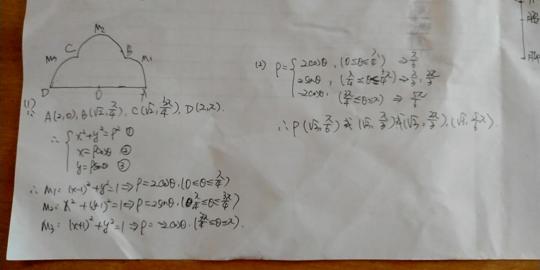 M₂
M₃ C B M₁
D O A
(1)
∵ A(2,0), B(√2, π/4), C(√2, 3π/4), D(2,π).
∴ { x²+y²=ρ² ①
x=ρcosθ ②
y=ρsinθ ③
∴ M₁= (x-1)²+y²=1⇒ρ=2cosθ.(0≤θ≤π/4)
M₂= x²+(y-1)²=1⇒ρ=2sinθ.(π/4≤θ≤3π/4)
M₃= (x+1)²+y²=1⇒ρ=-2cosθ.(3π/4≤θ≤π).
(2) ρ= { 2cosθ, (0≤θ≤π/4) ⇒ π/6
2sinθ, (π/4≤θ≤3π/4) ⇒ π/3, 2π/3
-2cosθ, (3π/4≤θ≤π) ⇒ 5π/6
∴ P(√3, π/6) 或 (√3, π/3) 或 (√3, 2π/3), (√3, 5π/6).